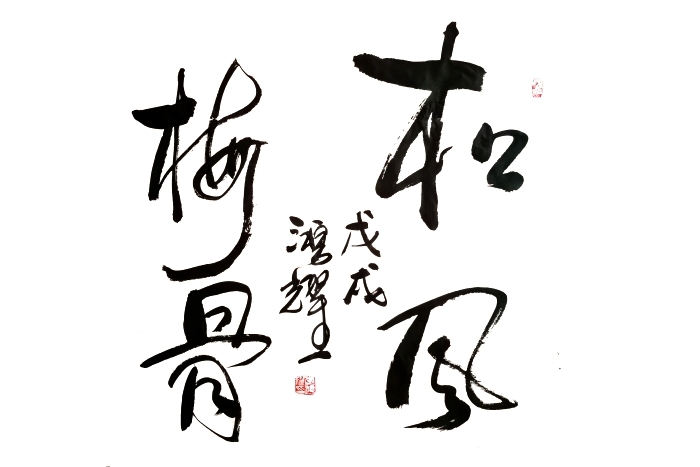 松风
梅骨
戊戌
鸿耀